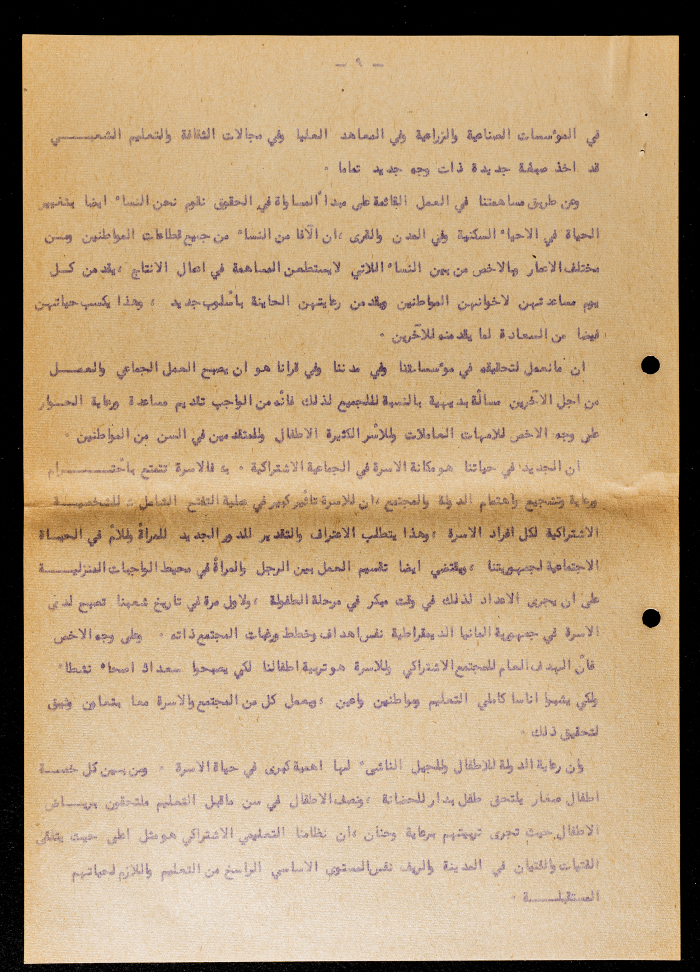 - ٩ -
في المؤسسات الصناعية والزراعية وفي المعاهد العليا وفي مجالات الثقافة والتعليم الشعبـــــي
قد اخذ صيغة جديدة ذات وجه جديد تماما ٠
وعن طريق مساهمتنا في العمل القائمة على مبدأ المساواة في الحقوق نقوم نحن النساء ايضا بتغيير
الحياة في الاحياء السكنية وفي المدن والقرى ،ان آلافا من النساء من جميع قطاعات المواطنين ومـن
مختلف الاعمار وبالاخص من بين النساء اللاتي لايستطعن المساهمة في اعمال الانتاج ،يقدمن كـــل
يوم مساعدتهن لاخوانهن المواطنين ويقدمن رعايتهن الحانية بأسلوب جديد ، وهذا يكسب حياتهـن
فيضا من السعادة لما يقدمنه للآخرين ٠
ان مانعمل لتحقيقه في مؤسساتنا وفي مدننا وفي قرانا هو ان يصبح العمل الجماعي والعمـــل
من اجل الآخرين مسألة بديهية بالنسبة للجميع لذلك فانه من الواجب تقديم مساعدة ورعاية الجـوار
على وجه الاخص للامهات العاملات وللأسر الكثيرة الاطفال وللمتقدمين في السن من المواطنين ٠
ان الجديد في حياتنا هو مكانة الاسرة في الجماعية الاشتراكية ٠ فالاسرة تتمتع باحتـــــرام
ورعاية وتشجيع واهتمام الدولة والمجتمع ،ان للاسرة تأثير كبير في عملية التفتح الشامل للشخصيـــة
الاشتراكية لكل افراد الاسرة ،وهذا يتطلب الاعتراف والتقدير للدور الجديد للمرأة وللأم في الحيـاة
الاجتماعية لجمهوريتنا ،ويقتضي ايضا تقسيم العمل بين الرجل والمرأة في محيط الواجبات المنزليـــة
على ان يجري الاعداد لذلك في وقت مبكر في مرحلة الطفولة ،ولاول مرة في تاريخ شعبنا تصبح لدى
الاسرة في جمهورية المانيا الديمقراطية نفس اهداف وخطط ورغبات المجتمع ذاته ٠ وعلى وجه الاخص
فان الهدف العام للمجتمع الاشتراكي وللاسرة هو تربية اطفالنا لكي يصبحوا سعداء اصحاء نشطاء
ولكي يشبوا اناسا كاملي التعليم ومواطنين واعين ،ويعمل كل من المجتمع والاسرة معا بتعاون وثيق
لتحقيق ذلك ٠
وان رعاية الدولة للاطفال وللجيل الناشيء لها اهمية كبرى في حياة الاسرة ٠ ومن بين كل خمســة
اطفال صغار يلتحق طفل بدار للحضانة ،ونصف الاطفال في سن ماقبل التعليم ملتحقين بريــاض
الاطفال حيث تجرى تربيتهم برعاية وحنان ،ان نظامنا التعليمي الاشتراكي هو مثل اعلى حيث يتلقى
الفتيات والفتيان في المدينة والريف نفس المستوى الاساسي الراسخ من التعليم واللازم لحياتهم
المستقبلـــة ٠